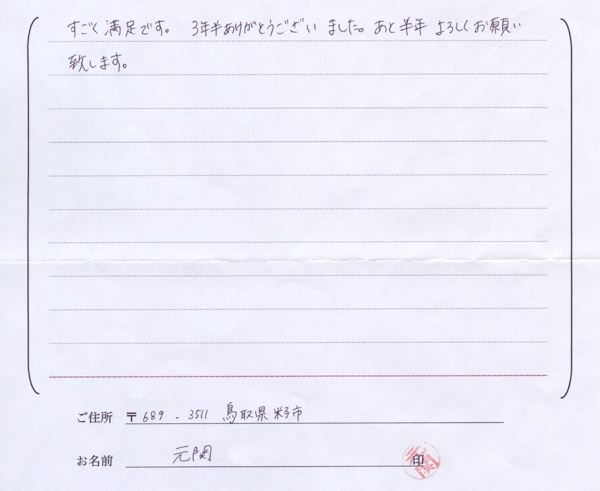 すごく満足です。 3年半ありがとうございました。あと半年 よろしくお願い
致します。
ご住所 〒689-3511 鳥取県米子市
お名前 元関 印